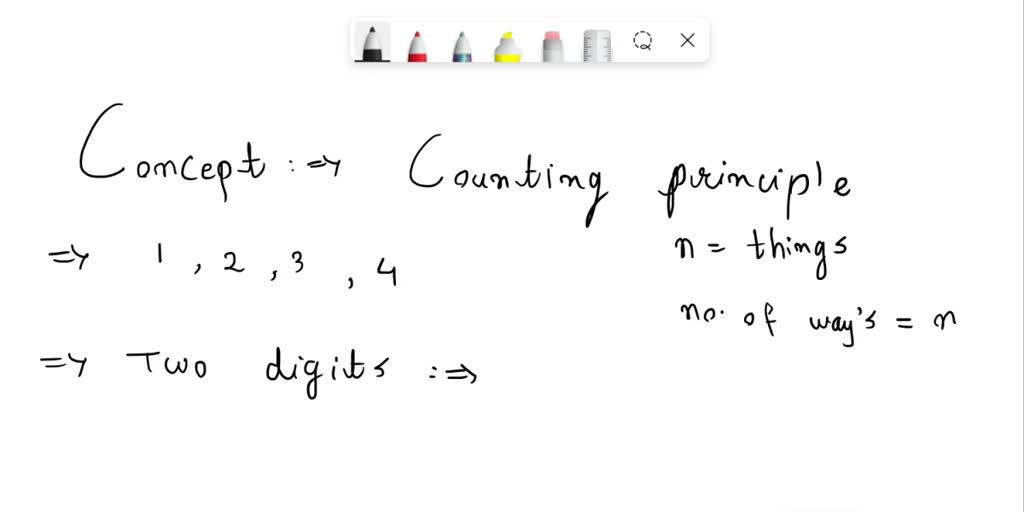 Concept :⇒ Counting principle
n = things
⇒ 1 , 2 , 3 , 4
no. of way's = n
⇒ Two digits :⇒